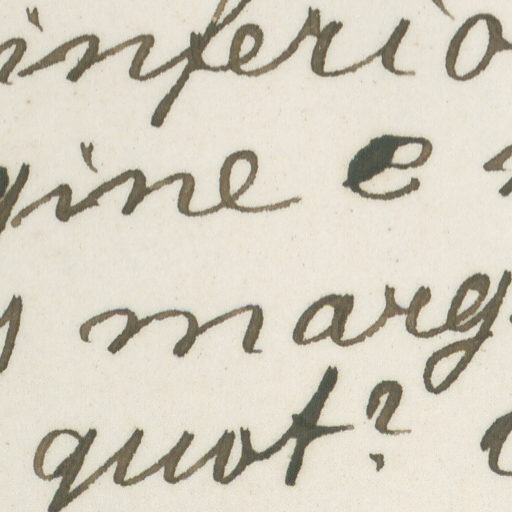 inferio
gine e
marg
quot?